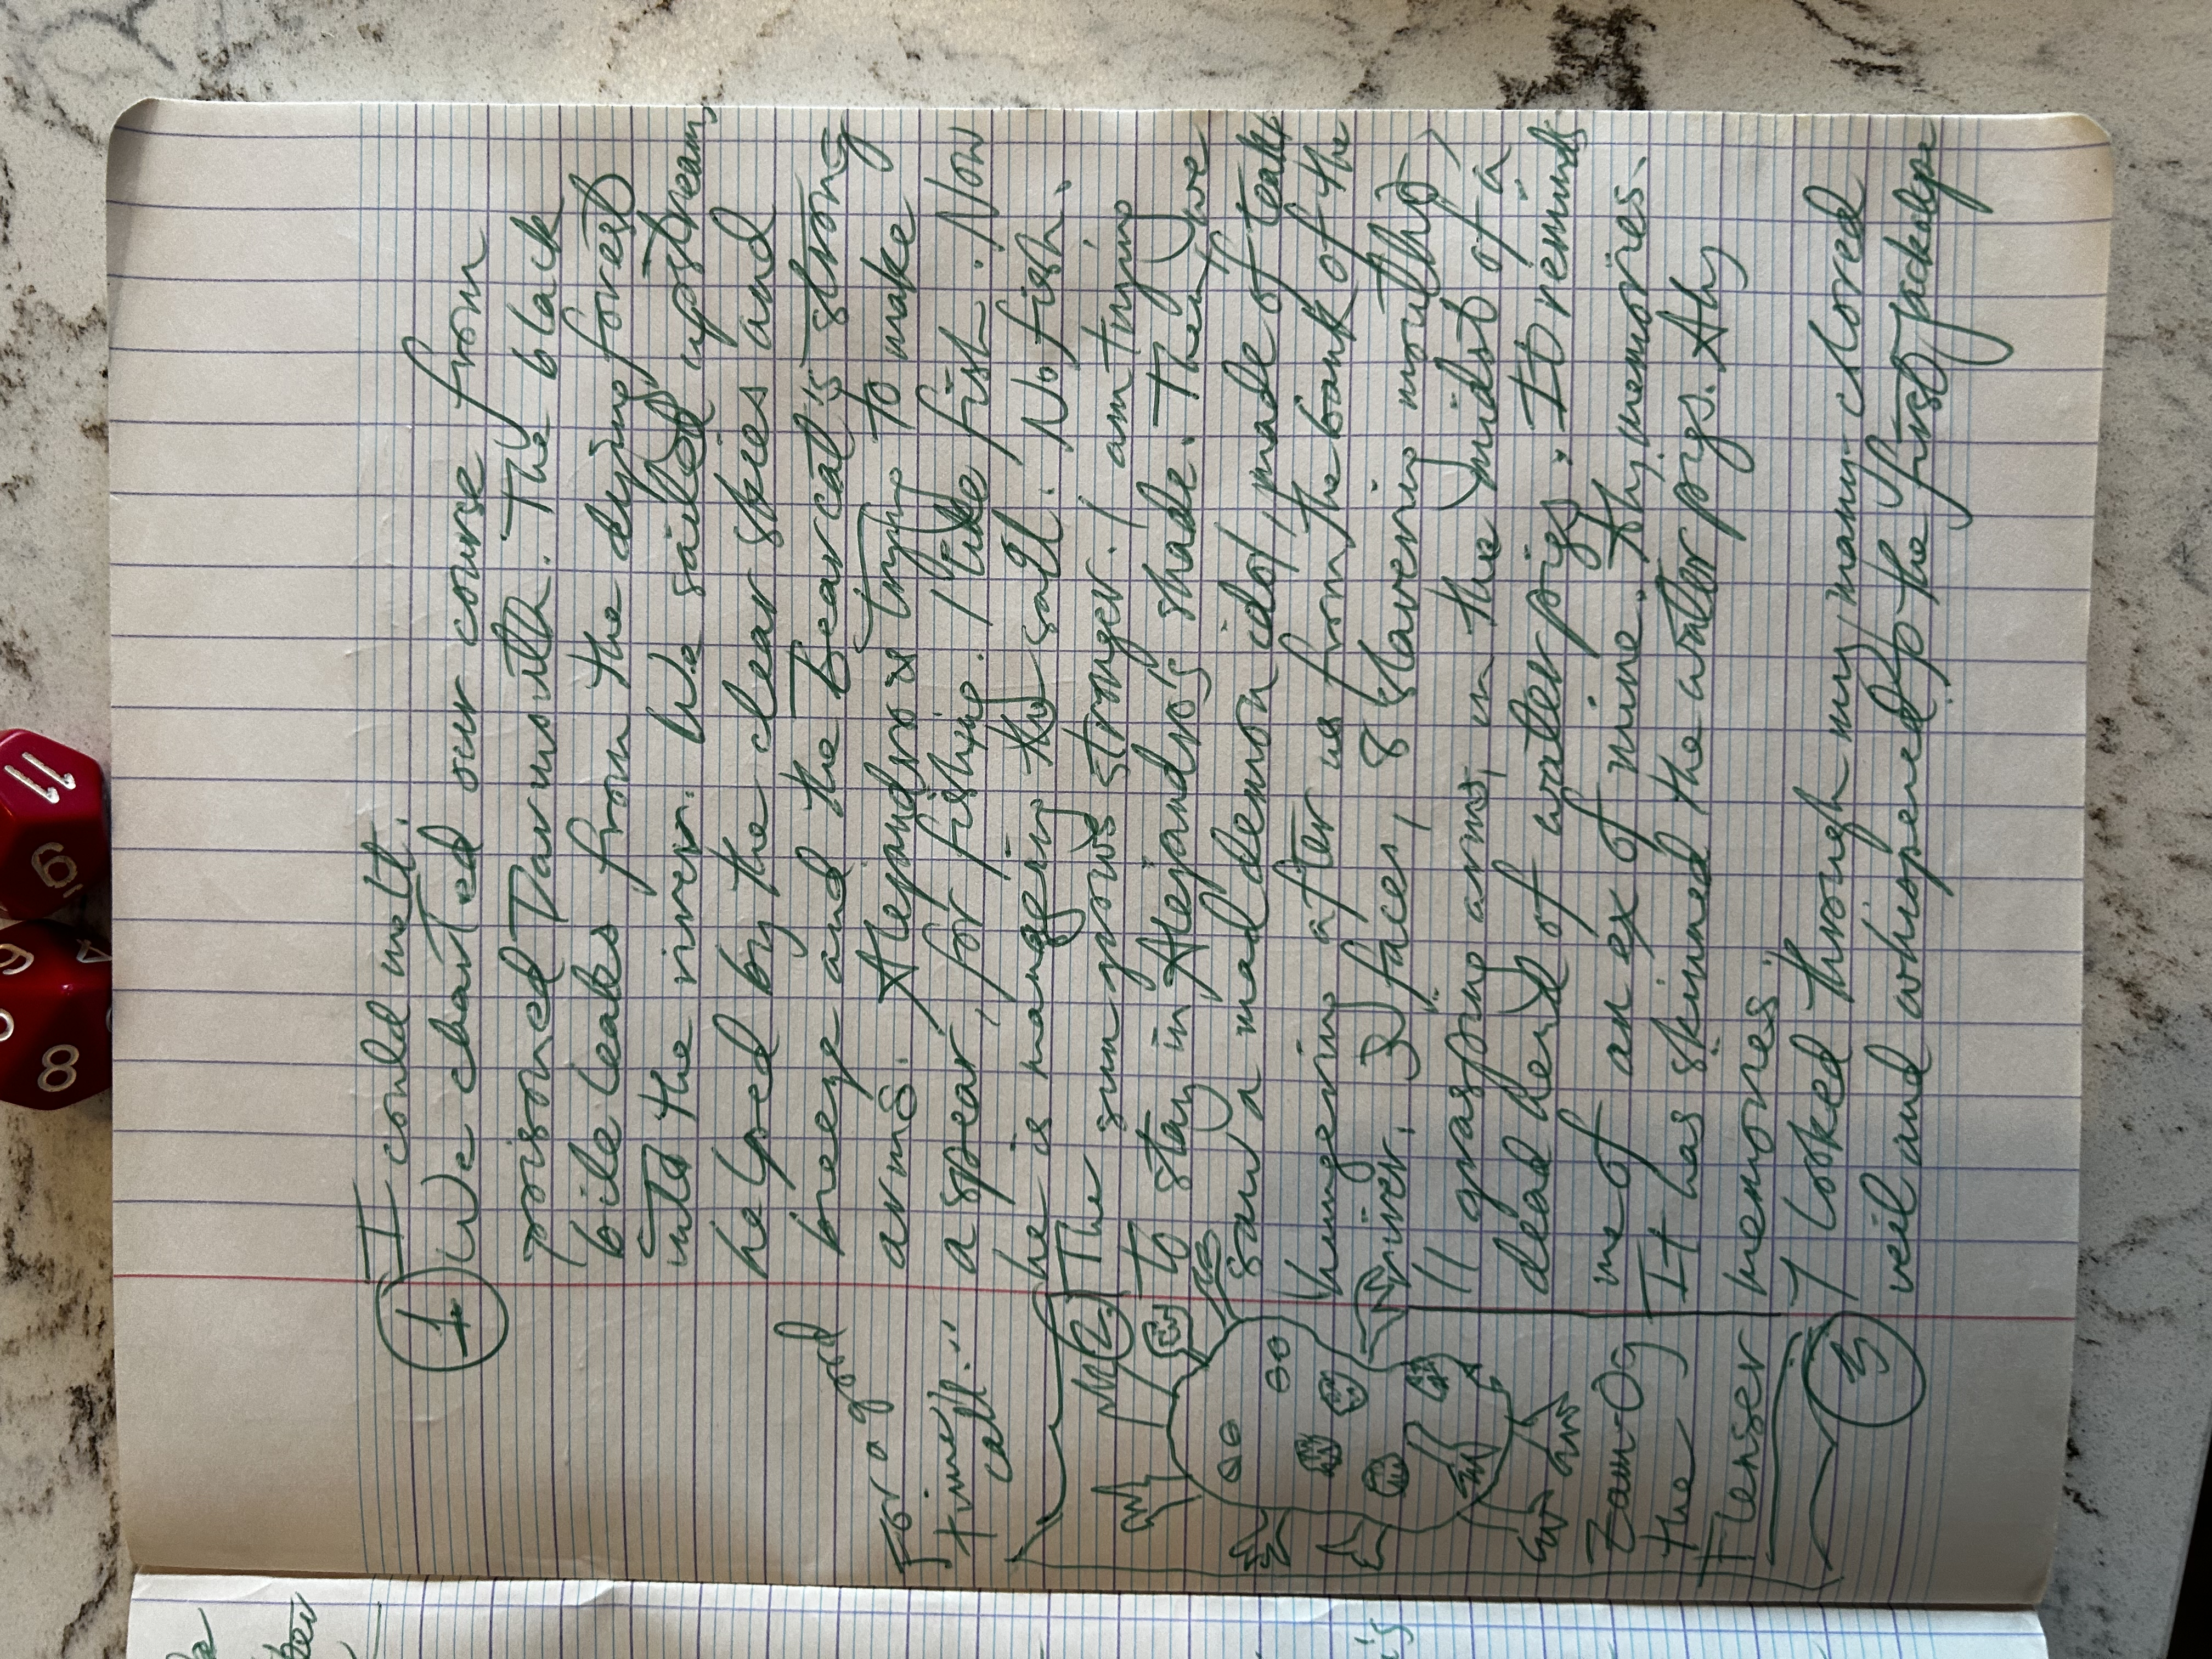 I could not.
1 We charted our course from
poisoned Darmouth. The black
bile leaks from the dying forest
into the river. We sailed upstream,
helped by the clear skies and
breeze and the Bearcat's strong
arms. Alejandro is trying to make
a spear, for fishing. I like fish. Now
he is managing the sail. No fish.
2 The sun grows stronger. I am trying
to stay in Alejandro's shade. Then, we
saw a mad demon idol, made of teeth
hungering after us from the bank of the
river. 3 faces, 8 slavering mouths,
11 grasping arms, in the midst of a
dead herd of water pigs. It reminds
me of an ex of mine. Ah, memories.
It has skinned the water pigs. Ah,
memories.
3 I looked through my many-
veil and whispered to the first jackalope
For a good
time,
call:"
Zam-Og
the
Flenser
11
19
6
4
8